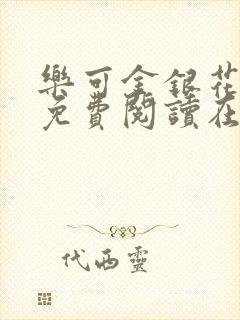 樂可金銀花
免費閱讀在
代西靈